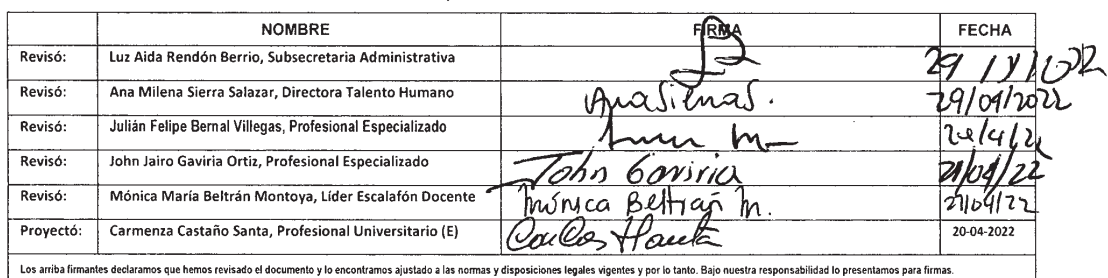 NOMBRE FIRMA FECHA
Revisó: Luz Aida Rendón Berrio, Subsecretaria Administrativa
Revisó: Ana Milena Sierra Salazar, Directora Talento Humano AnaSierraS. 29/04/2022
Revisó: Julián Felipe Bernal Villegas, Profesional Especializado
Revisó: John Jairo Gaviria Ortiz, Profesional Especializado John Gaviria 21/04/22
Revisó: Mónica María Beltrán Montoya, Líder Escalafón Docente Mónica Beltrán M. 21/04/22
Proyectó: Carmenza Castaño Santa, Profesional Universitario (E) 20-04-2022
Los arriba firmantes declaramos que hemos revisado el documento y lo encontramos ajustado a las normas y disposiciones legales vigentes y por lo tanto. Bajo nuestra responsabilidad lo presentamos para firmas.